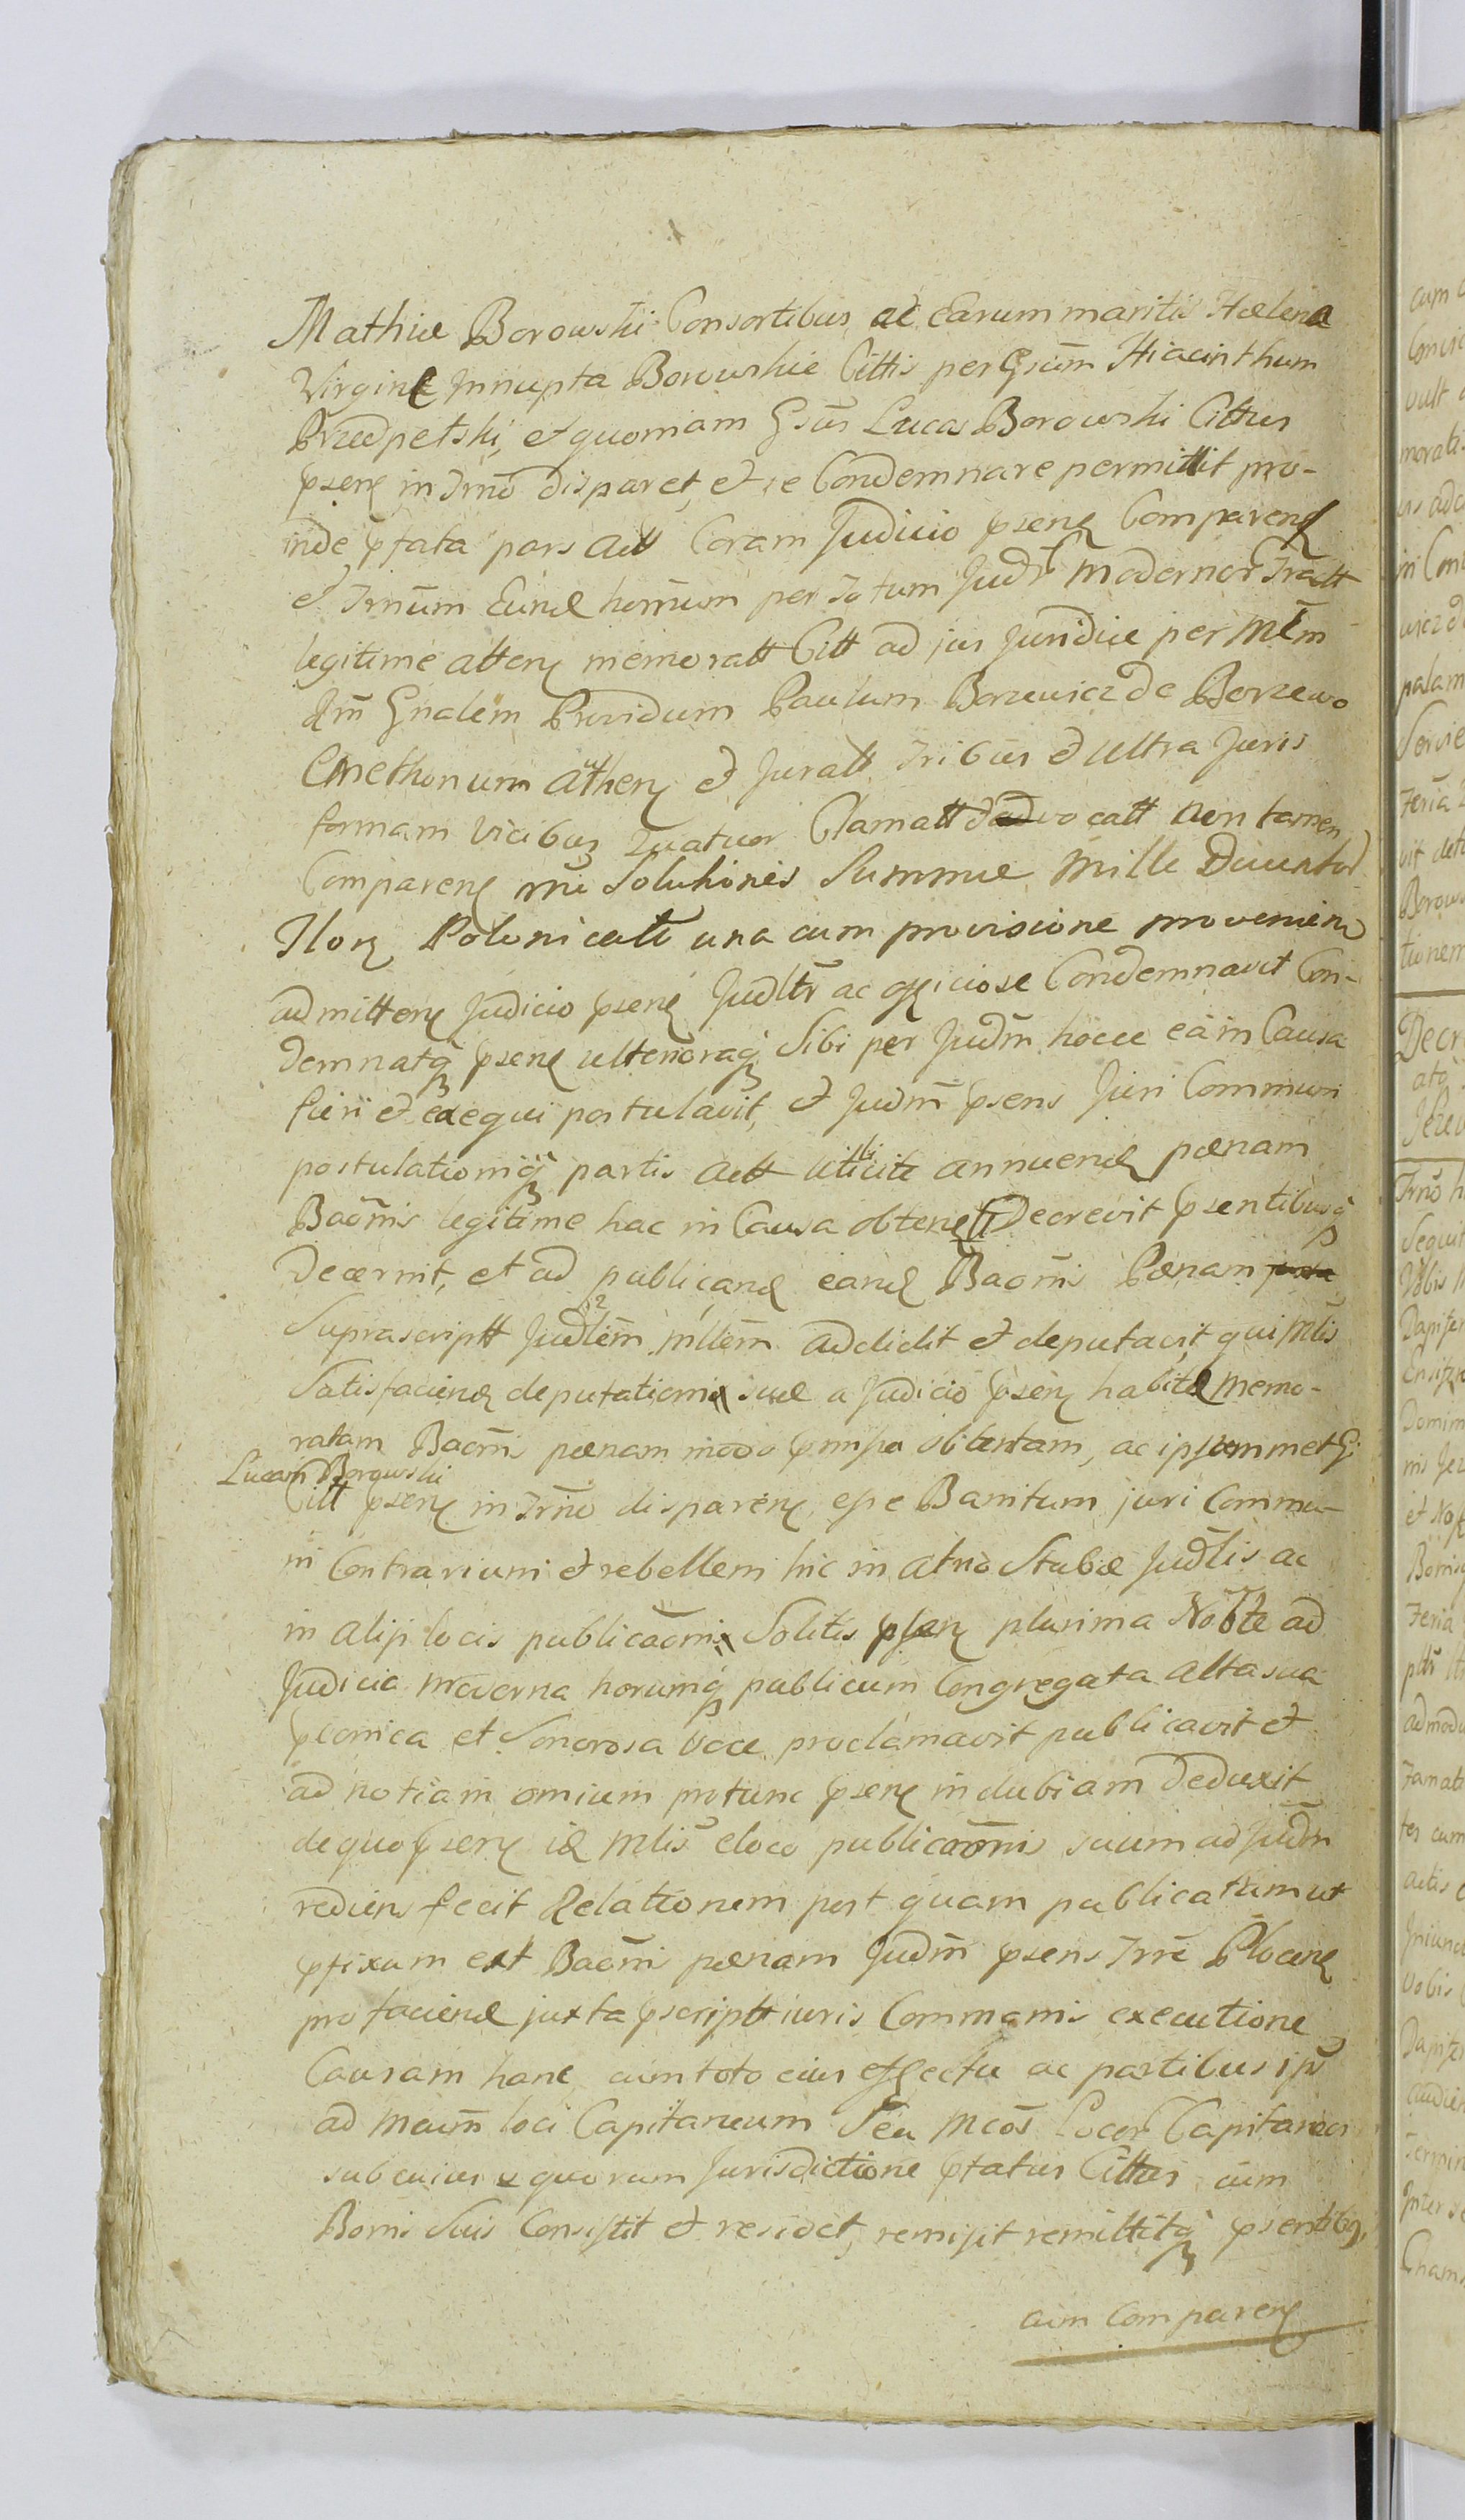 Mathiæ Borowski Consortibus ac Earum maritis Hælena
Virgine Innupta Borowskie Cittis per Gsum Hiacinthum
Przedpełski, et quoniam Gsus Lucas Borowski Cittus
psens in Trno disparet, et se Condemnare permittit pro-
inde pfata pars Act Coram Judicio psens Comparens
et Trnum Eund hornum per totum Judr modernor Tratt
legitime attens memoratt Citt ad jus Juridice per Mlem
Rm Gnalem Providum Paulum Borzewicz de Borzewo
Cmethonum authen et Juratt tribus et ultra Juris
formam vicibus quatuor Clamatt advocatt non tamen
Comparens rne Solutionis Summæ Mille Ducentor
Flor Polonicalt una cum provisione provenien
admittens Judicio psens Judltr ac officiose Condemnavit Con-
demnatq psens ulterioraq Sibi per Judm hocce ea in Causa
fieri et exequi postulavit, et Judm psens Juri Communi
postulationiq partis Act uti licite annuend pænam
Baonis legitime hac in Causa obtent Decrevit psentibusq
Decernit, et ad publicand eand Baonis Pænam
Suprascriptt Judlem Mlem addidit et deputavit qui Mlis
Satisfaciend deputationi suæ a Judicio psens habitæ memo-
ratam Baonis pænam modo pmisso obtentam, ac ipsummet G:
Lucam Borowski
Citt psens in Trno disparens esse Banitum juri Commu-
ni Contrarium et rebellem hic in atrio Stubæ Judlis ac
in alijs locis publicaoni Solitis psens plurima Noblte ad
Judicia moderna horumq publicum Congregata alta sua
pconica et Sonorosa voce proclamavit publicavit et
ad notiam omium protunc psens indubiam deduxit
de quo psens id Mlis eloco publicaonis suum ad Judm
rediens fecit Relationem post quam publicatam ut
pfixum est Baonis pænam Judm psens Trre Plocens
pro faciend juxta pscriptt iuris Communis executione
Causam hanc cum toto eius effectu ac partibus ips
ad Mcum loci Capitaneum Seu Mcos Locor Capitaneos
sub cuius et quorum Jurisdictione pfatus Cittus cum
Bonis Suis Consistit et residet, remisit remittitq psentibus,
cum Comparens